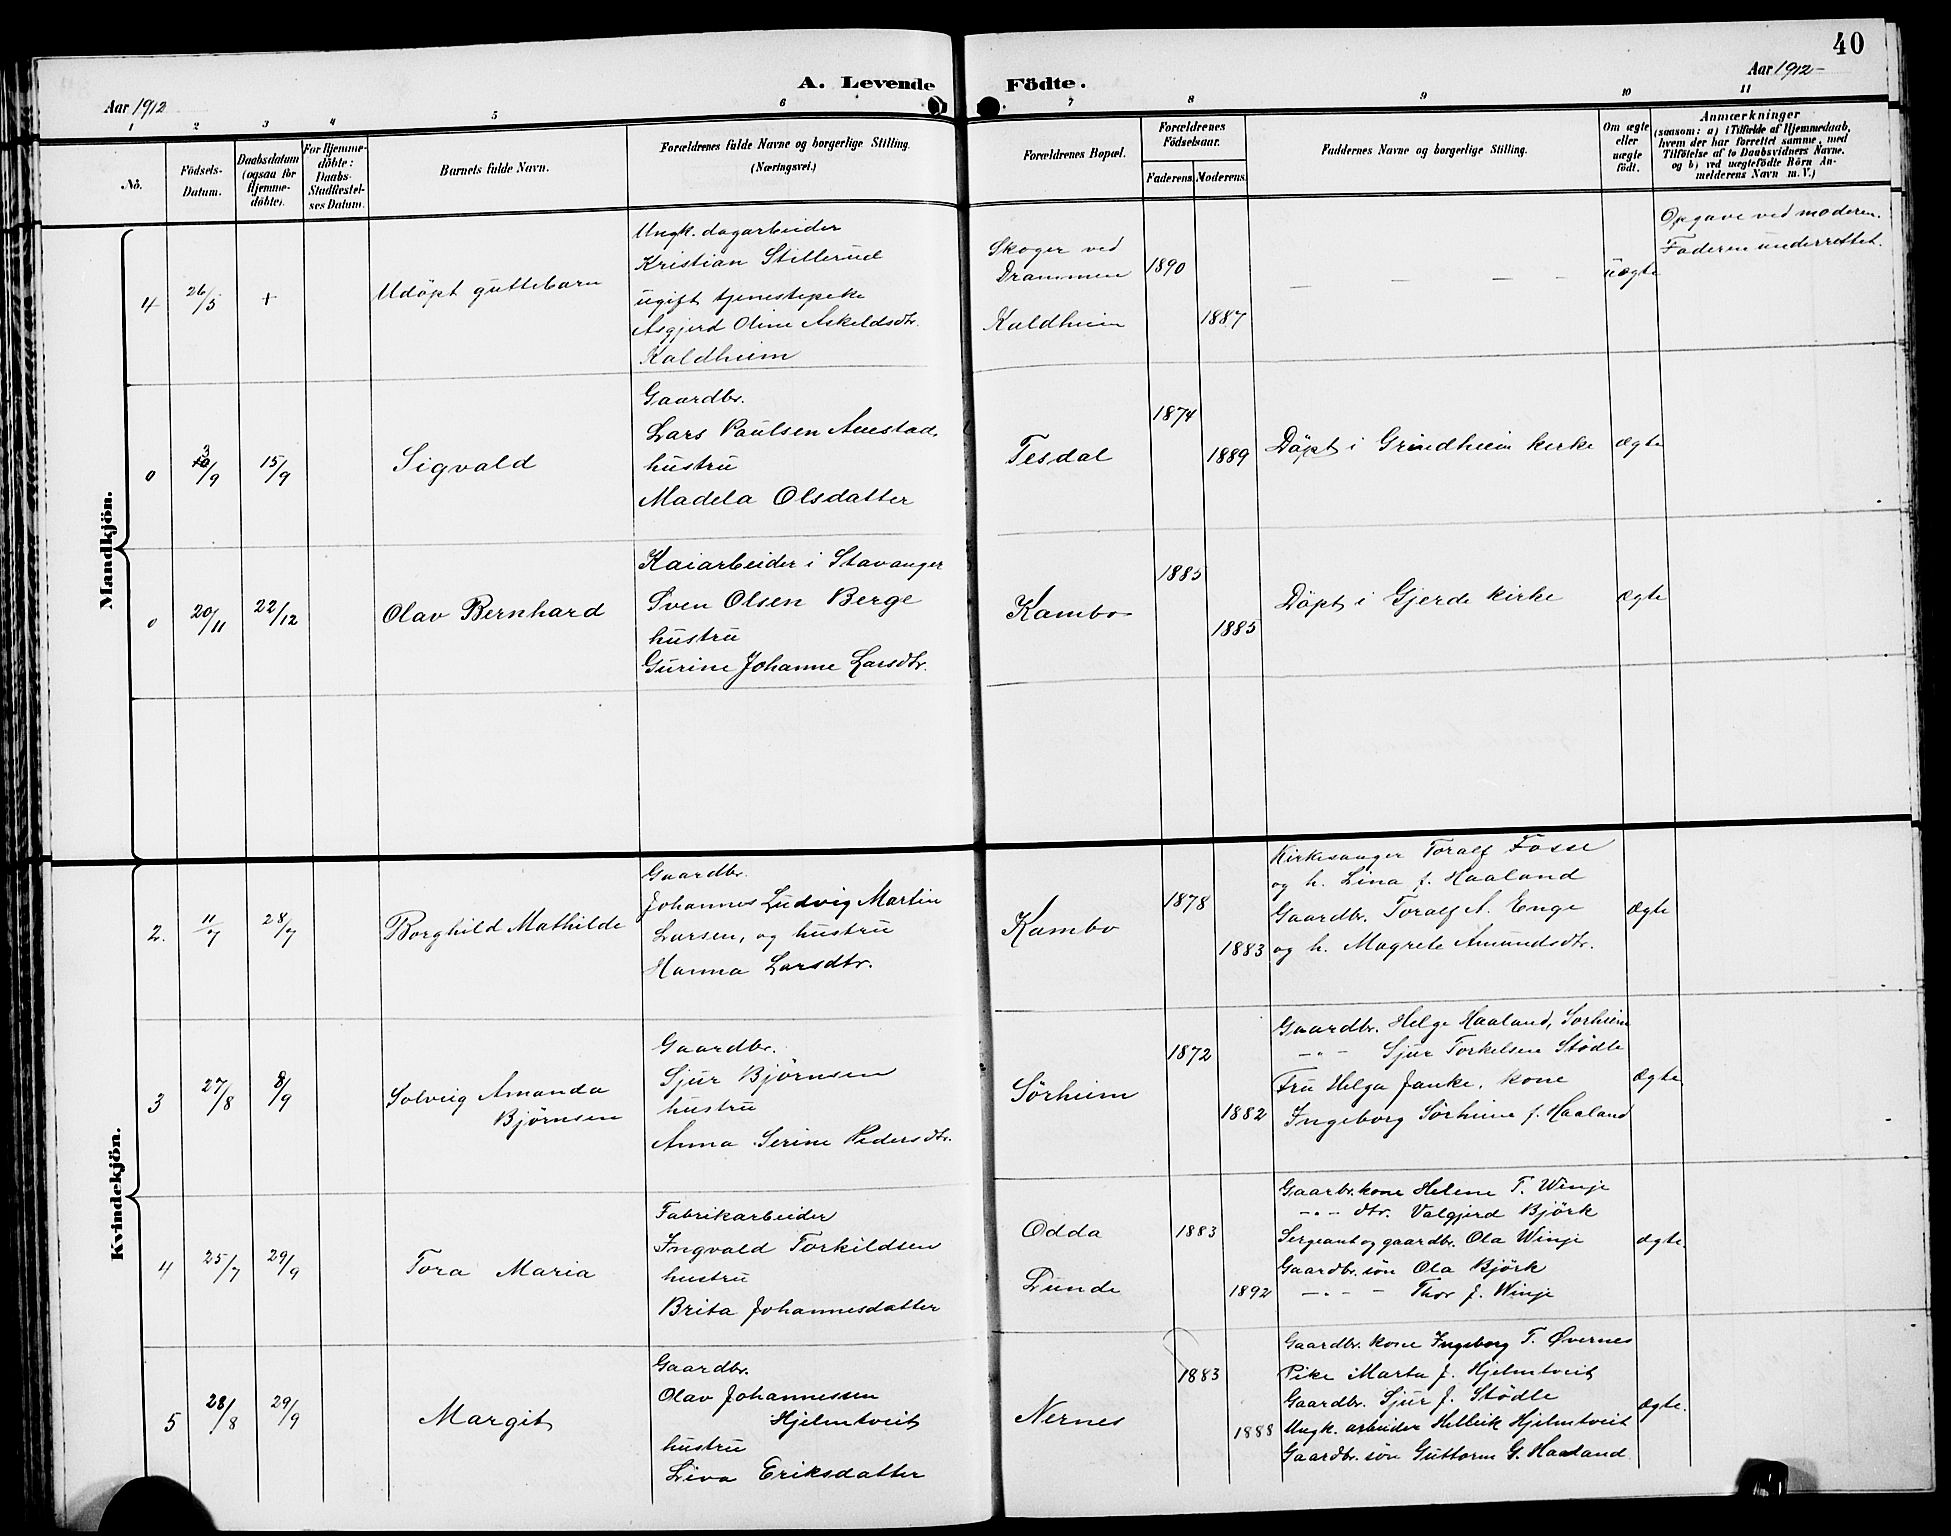 40
A. Levende Födte.
Aar 1912
Aar 1912-
1 2 3 4 5 6 7 8 9 10 11
No.
Födsels-Datum.
Daabsdatum (ogsaa for Hjemme-döbte).
For Hjemme-döbte: Daabs-Stadfæstel-ses Datum.
Barnets fulde Navn.
Forældrenes fulde Navne og borgerlige Stilling.
(Næringsvei.)
Forældrenes Bopæl.
Forældrenes Födselsaar.
Faderens. Moderens.
Faddernes Navne og borgerlige Stilling.
Om ægte eller uægte födt.
Anmærkninger
(saasom: a) i Tilfælde af Hjemmedaab,
hvem der har forrettet samme, med
Tilföielse af to Daabsvidners Navne.
og b) ved uægtefödte Börn An-
melderens Navn m. V.)
Mandkjön.
4 26/5 + Udöpt guttebarn
Ungk. dagarbeider
Kristian Stillerud
ugift tjenestepike
Asgjerd Oline Askeldsdtr.
Kaldheim
Skoger ved
Drammen
Kaldheim
1890
1887
— — — —
uægte
Opgave ved moderen.
Faderen underrettet.
0 3/9 15/9 Sigvald
Gaardbr.
Lars Paulsen Auestad,
hustru
Madela Olsdatter
Tesdal
1874
1889
Döpt i Grindheim kirke
ægte
0 20/11 22/12 Olav Bernhard
Kaiarbeider i Stavanger
Sven Olsen Berge
hustru
Gurine Johanne Larsdtr.
Kambo
1885
1885
Döpt i Gjerde kirke
ægte
Kvindekjön.
2. 11/7 28/7 Borghild Mathilde
Gaardbr.
Johannes Ludvig Martin
Larsen, og hustru
Hanna Larsdtr.
Kambo
1878
1883
Kirkesanger Toralf Fosse
og h. Lina f. Haaland
Gaardbr. Toralf A. Enge
og h. Magrete Amundsdtr.
Ægte
3 27/8 8/9 Solveig Amanda
Bjørnsen
Gaardbr.
Sjur Bjørnsen
hustru
Anna Serine Pedersdtr.
Sörheim
1872
1882
Gaardbr. Helge Haaland, Sørheim
—"— Sjur Torkelsen Stødle
Fru Helga Janke, kone
Ingeborg Sørheim f. Haaland
Ægte
4 25/7 29/9 Tora Maria
Fabrikarbeider
Ingvald Torkildsen
hustru
Brita Johannesdatter
Odda
Lunde
1883
1892
Gaarbr.kone Helene T. Winje
—"— dtr. Valgjerd Björk
Sergeant og gaardbr. Ola Winje
Gaardbr. sön Ola Björk
—"— — Thor J. Winje
ægte.
5 28/8 29/9 Margit
Gaardbr.
Olav Johannessen
Hjelmtveit
hustru
Liva Eriksdatter
Nernes
1883
1888
Gaardbr. kone Ingeborg T. Øvernes
Pike Marta J. Hjelmtveit
Gaardbr. Sjur J. Stødle
Ungk. arbeider Helleik Hjelmtveit
Gaardbr. søn Guttorm G. Haaland.
ægte.